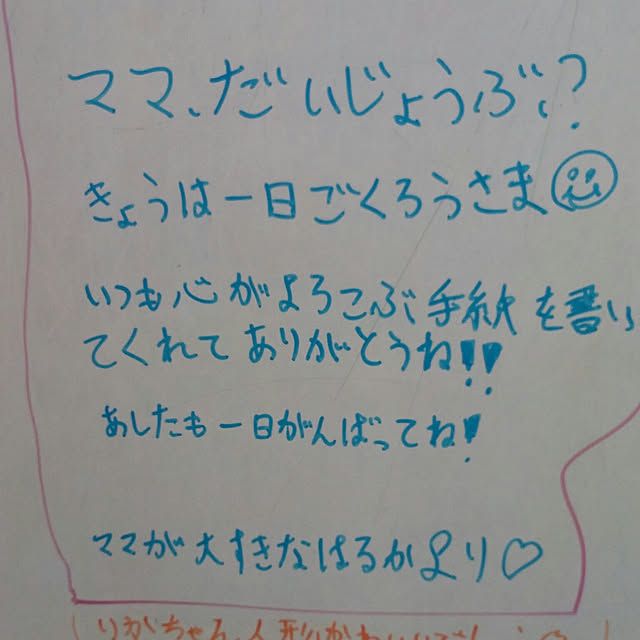 ママ、だいじょうぶ、?
きょうは一日ごくろうさま
いつも心がよろこぶ手紙を書い
てくれてありがとうね!!
あしたも一日がんばってね!
ママが大すきなはるかより♡